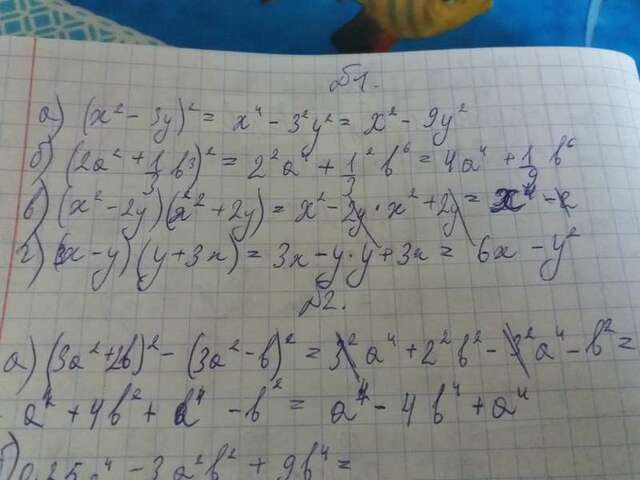 №1.
а) (x² - 3y)² = x⁴ - 3²y² = x² - 9y²
б) (2a² + 1/3 b³)² = 2²a⁴ + 1/3² b⁶ = 4a⁴ + 1/9 b⁶
в) (x² - 2y)(x² + 2y) = x² - 2y · x² + 2y = x⁴ -
г) (3x - y)(y + 3x) = 3x - y · y + 3x = 6x - y²
№2.
а) (3a² + 2b)² - (3a² - b)² = 3²a⁴ + 2²b² - 3²a⁴ - b² =
a⁴ + 4b² + a⁴ - b² = a⁴ - 4b⁴ + a⁴
0,25a⁴ - 3a²b² + 9b⁴ =